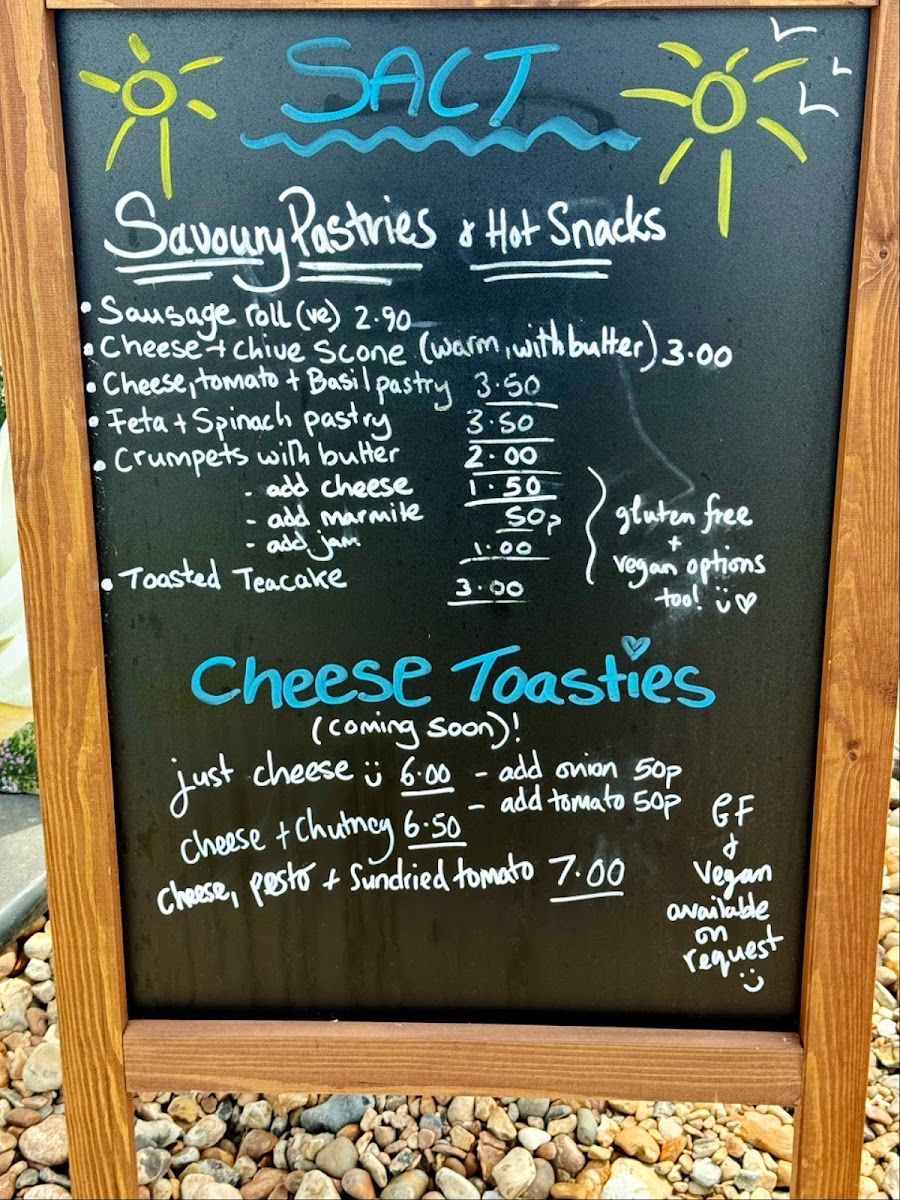 SALT
Savoury Pastries & Hot Snacks
• Sausage roll (ve) 2.90
• Cheese + chive scone (warm, with butter) 3.00
• Cheese, tomato + Basil pastry 3.50
• Feta + Spinach pastry 3.50
• Crumpets with butter 2.00
- add cheese 1.50
- add marmite 50p
- add jam 1.00
gluten free
+
vegan options
too!
• Toasted Teacake 3.00
Cheese Toasties
(coming soon)!
just cheese 6.00 - add onion 50p
- add tomato 50p
cheese + Chutney 6.50
Cheese, pesto + Sundried tomato 7.00
GF
&
vegan
available
on
request